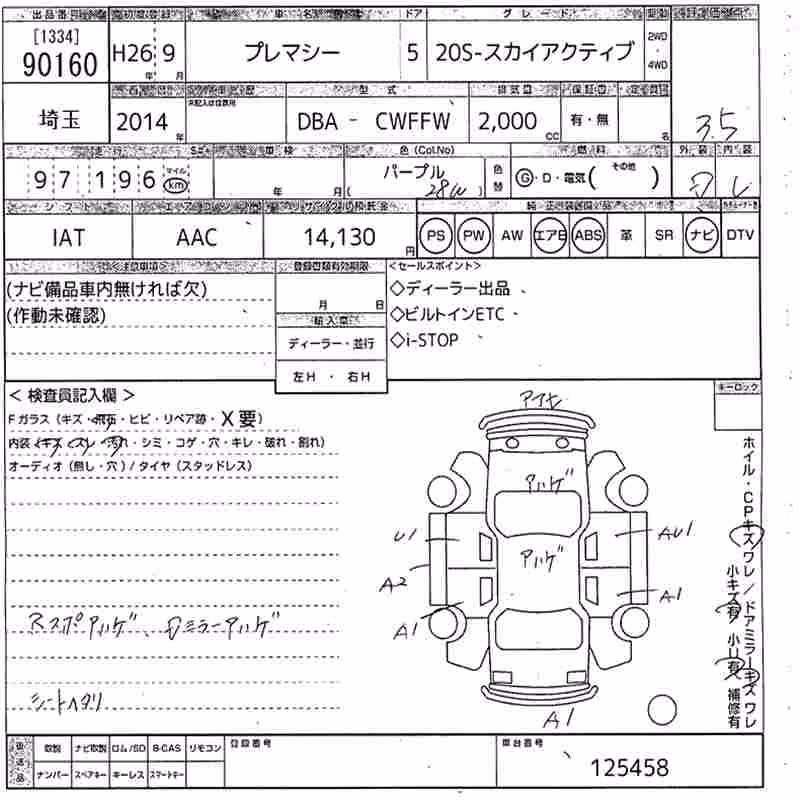 出品番号 初度登録 車名 ドア グレード 駆動 評価点
[1334]
90160 H26年 9月 プレマシー 5 20S-スカイアクティブ 2WD・4WD
埼玉 2014年 未記入は自家用 型式 DBA - CWFFW 排気量 2,000cc 保証書 有・無 定員 名 3.5
走行 97,196 マイル km 車検 年 月 色(Col.No) パープル (28W) 色替 燃料 G・D・電気( その他 ) 外装 内装
シフト エアコン リサイクル預託金 純正装備品
IAT AAC 14,130円 PS PW AW エアB ABS 革 SR ナビ DTV
<注意事項> 登録書類有効期限 <セールスポイント>
(ナビ備品車内無ければ欠) 月 日 ◇ディーラー出品
(作動未確認) 輸入車 ◇ビルトインETC
ディーラー・並行 ◇i-STOP
左H ・ 右H
キーロック
< 検査員記入欄 > アイセ
Fガラス (キズ・飛石・ヒビ・リペア跡・X要)
内装 (キズ・スレ・汚れ・シミ・コゲ・穴・キレ・破れ・割れ)
オーディオ (無し・穴) / タイヤ (スタッドレス)
Aハゲ
U1 Aハゲ AU1
A2 A1
A1
Rスポアハゲ、Dミラーアハゲ
シートヘタリ
A1
ホイル・CPキズワレ/ドアミラーキズワレ
小キズ有 小U有 補修有
返送品 取説 ナビ取説 ロム/SD B-CAS リモコン 登録番号 車台番号
ナンバー スペアキー キーレス スマートキー 125458